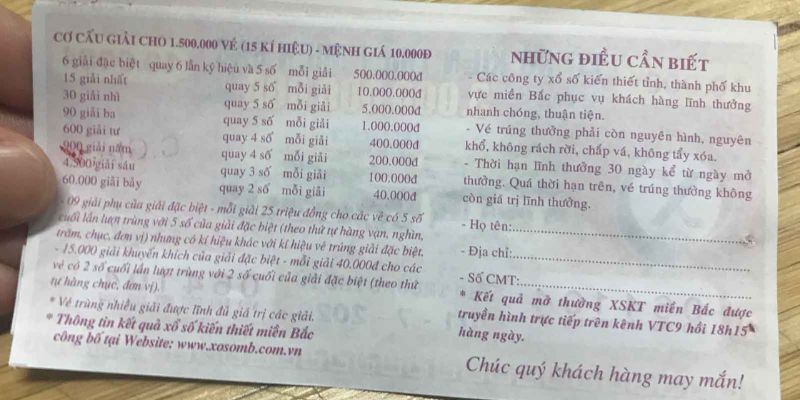 CƠ CẤU GIẢI CHO 1.500.000 VÉ (15 KÍ HIỆU) - MỆNH GIÁ 10.000Đ
6 giải đặc biệt quay 6 lần ký hiệu và 5 số mỗi giải 500.000.000đ
15 giải nhất quay 5 số mỗi giải 10.000.000đ
30 giải nhì quay 5 số mỗi giải 5.000.000đ
90 giải ba quay 5 số mỗi giải 1.000.000đ
600 giải tư quay 4 số mỗi giải 400.000đ
900 giải năm quay 4 số mỗi giải 200.000đ
4.500 giải sáu quay 3 số mỗi giải 100.000đ
60.000 giải bảy quay 2 số mỗi giải 40.000đ
- 09 giải phụ của giải đặc biệt - mỗi giải 25 triệu đồng cho các vé có 5 số
cuối lần lượt trùng với 5 số của giải đặc biệt (theo thứ tự hàng vạn, nghìn,
trăm, chục, đơn vị) nhưng có kí hiệu khác với kí hiệu vé trúng giải đặc biệt.
- 15.000 giải khuyến khích của giải đặc biệt - mỗi giải 40.000đ cho các
vé có 2 số cuối lần lượt trùng với 2 số cuối của giải đặc biệt (theo thứ
tự hàng chục, đơn vị).
* Vé trúng nhiều giải được lĩnh đủ giá trị các giải.
* Thông tin kết quả xổ số kiến thiết miền Bắc
công bố tại Website: www.xosomb.com.vn
NHỮNG ĐIỀU CẦN BIẾT
- Các công ty xổ số kiến thiết tỉnh, thành phố khu
vực miền Bắc phục vụ khách hàng lĩnh thưởng
nhanh chóng, thuận tiện.
- Vé trúng thưởng phải còn nguyên hình, nguyên
khổ, không rách rời, chắp vá, không tẩy xóa.
- Thời hạn lĩnh thưởng 30 ngày kể từ ngày mở
thưởng. Quá thời hạn trên, vé trúng thưởng không
còn giá trị lĩnh thưởng.
- Họ tên:
- Địa chỉ:
- Số CMT:
* Kết quả mở thưởng XSKT miền Bắc được
truyền hình trực tiếp trên kênh VTC9 hồi 18h15'
hàng ngày.
Chúc quý khách hàng may mắn!